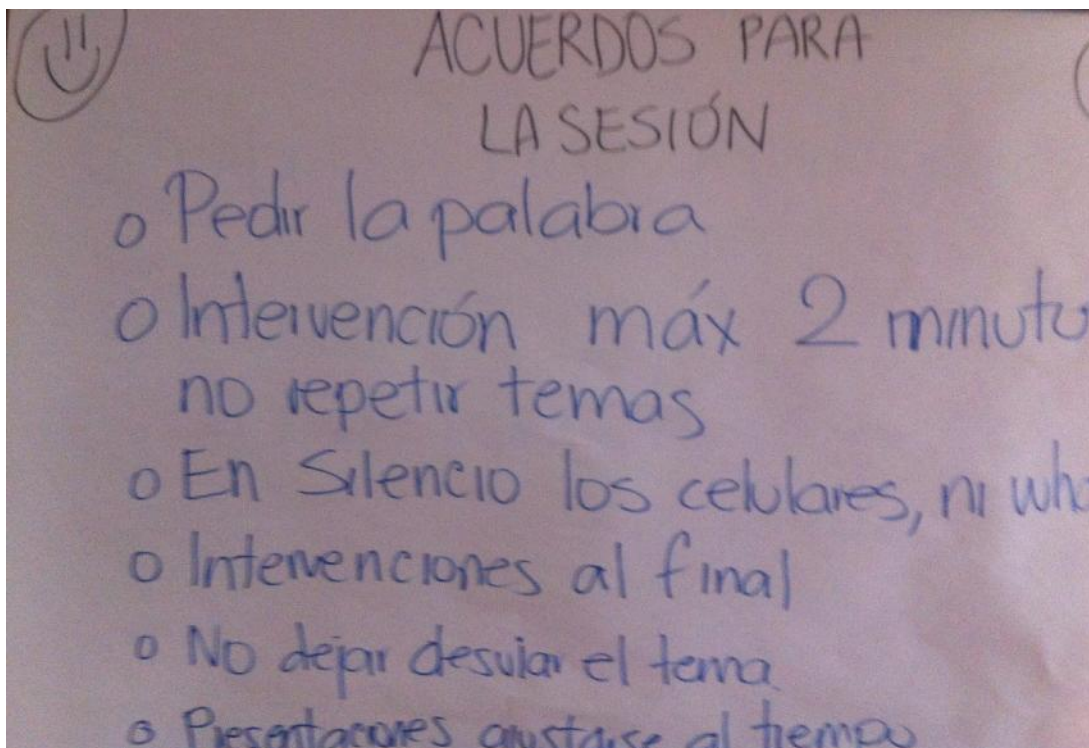 ACUERDOS PARA
LA SESIÓN
o Pedir la palabra
o Intervención máx 2 minuto
no repetir temas
o En Silencio los celulares, ni wha
o Intervenciones al final
o No dejar desviar el tema
o Presentaciones ajustarse al tiempo